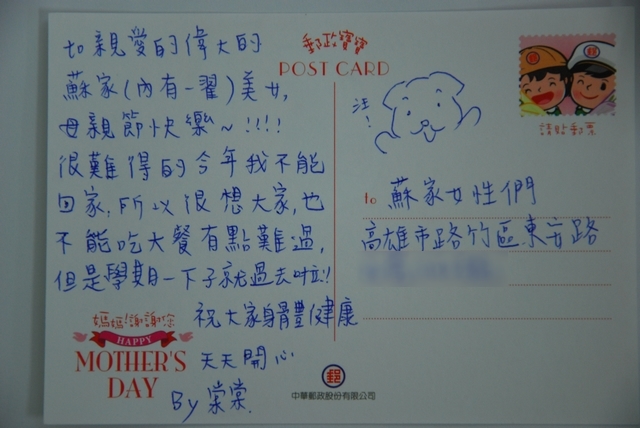 to 親愛的偉大的
蘇家(內有一翟)美女,
母親節快樂~!!!!
很難得的今年我不能
回家,所以很想大家,也
不能吃大餐有點難過,
但是學期一下子就過去啦!!
祝大家身體健康
天天開心
By 棠棠.
媽媽!謝謝您
HAPPY
MOTHER'S
DAY
郵政寶寶
POST CARD
汪!
請貼郵票
to 蘇家女性們
高雄市路竹區東方路
郵
中華郵政股份有限公司